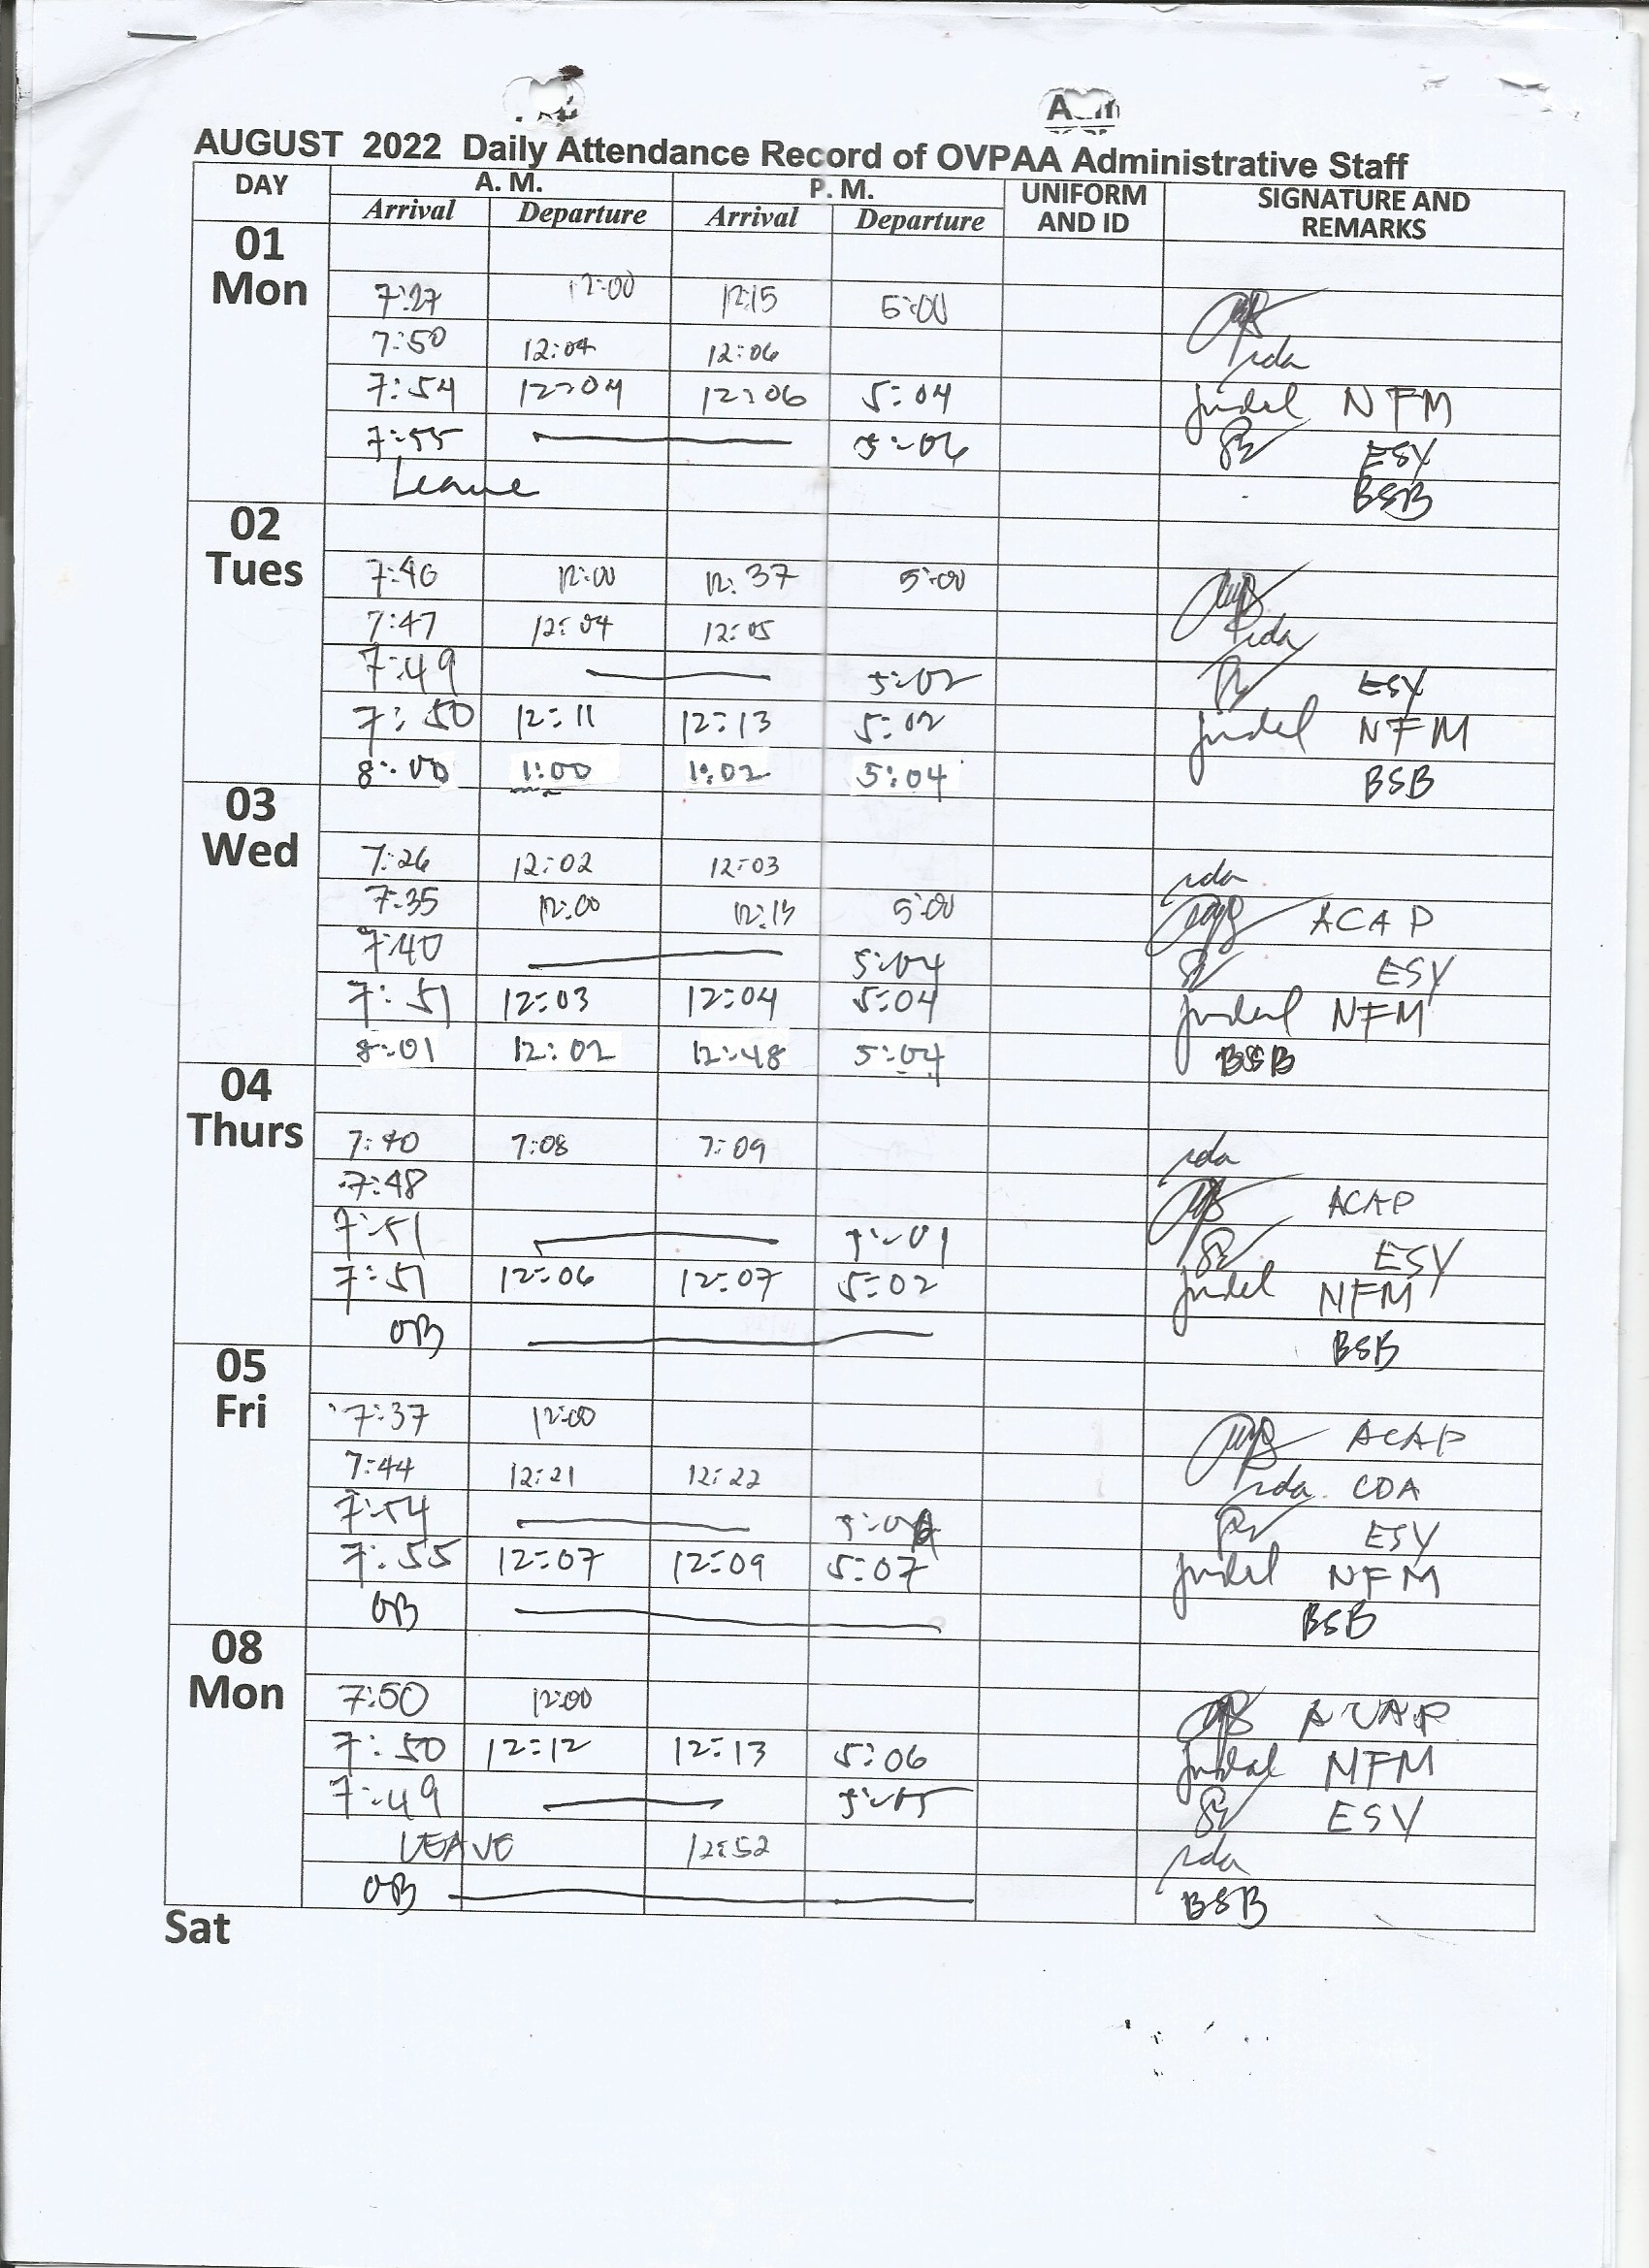 AUGUST 2022 Daily Attendance Record of OVPAA Administrative Staff
DAY A. M. P. M. UNIFORM AND ID SIGNATURE AND REMARKS
Arrival Departure Arrival Departure
01 Mon
7:27 12:00 12:15 5:00
7:50 12:04 12:06 rda
7:54 12:04 12:06 5:04 NFM
7:55 5:06 ESY
Leave BSB
02 Tues
7:40 12:00 12:37 5:00
7:47 12:04 12:05 rda
7:49 5:02 ESY
7:50 12:11 12:13 5:02 NFM
8:00 1:00 1:02 5:04 BSB
03 Wed
7:26 12:02 12:03 rda
7:35 12:00 12:13 5:00 ACAP
7:40 5:04 ESY
7:51 12:03 12:04 5:04 NFM
8:01 12:02 12:48 5:04 BSB
04 Thurs
7:40 7:08 7:09 rda
7:48 ACAP
7:51 5:01 ESY
7:51 12:06 12:07 5:02 NFM
OB BSB
05 Fri
7:37 12:00 ACAP
7:44 12:21 12:22 rda. CDA
7:54 ESY
7:55 12:07 12:09 5:07 NFM
OB BSB
08 Mon
7:50 12:00 ACAP
7:50 12:12 12:13 5:06 NFM
7:49 5:05 ESY
LEAVE 12:52 rda
OB BSB
Sat